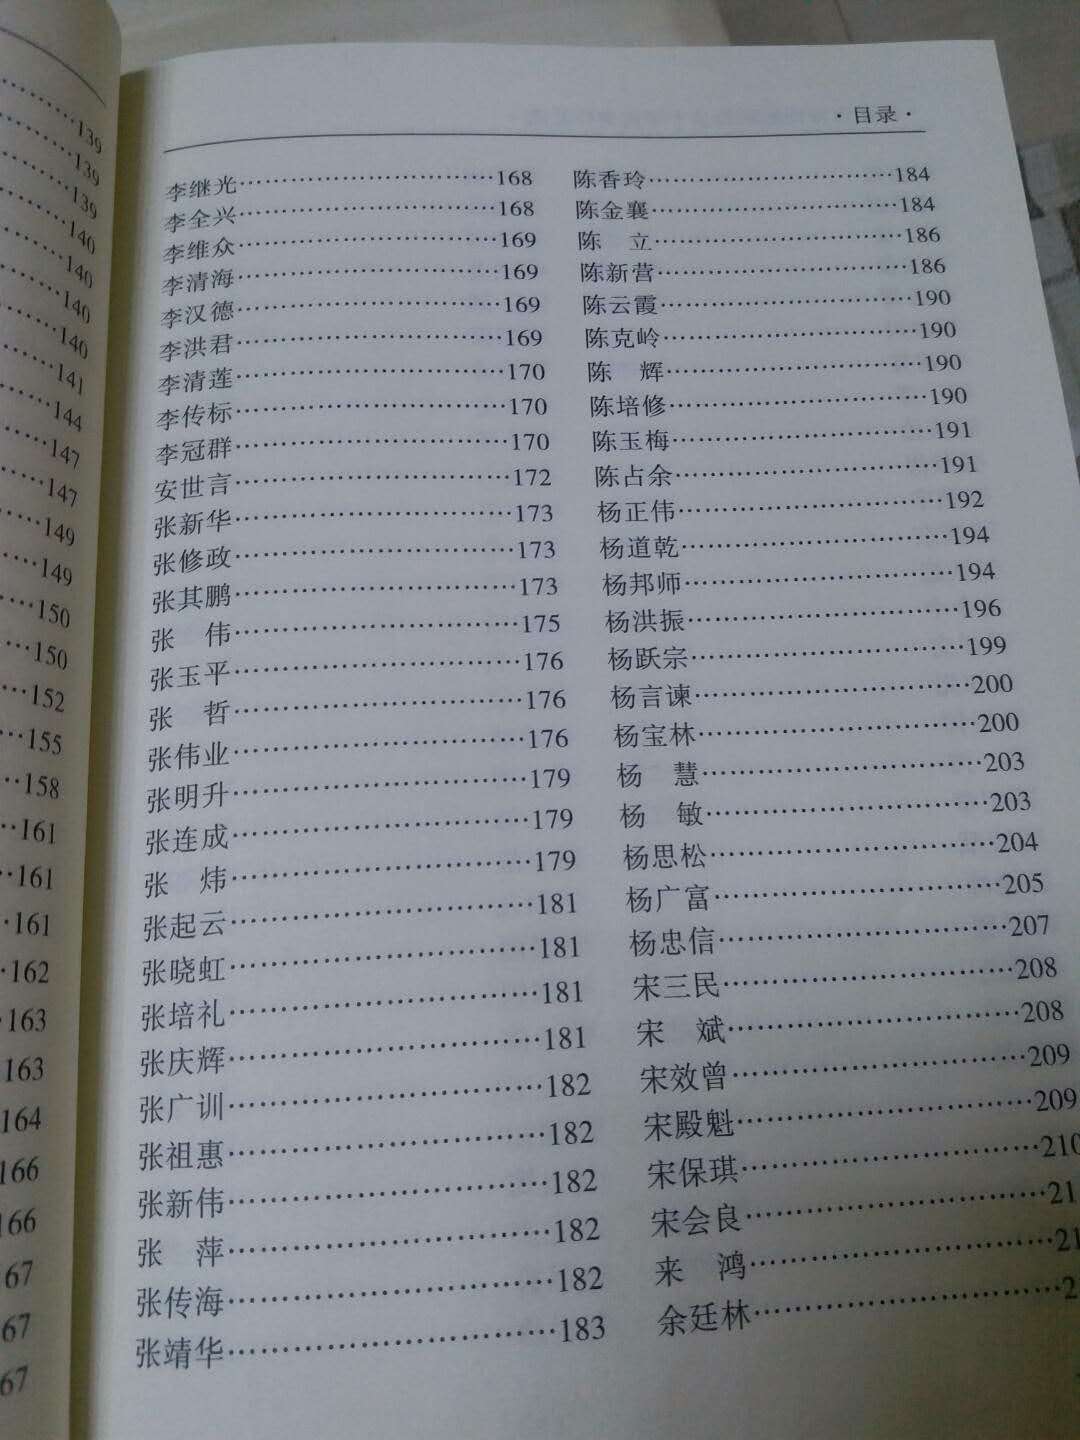 139
139
139
140
140
140
140
141
144
147
147
149
149
150
150
152
155
158
161
161
161
162
163
163
164
166
166
67
67
67
·目录·
李继光……168
李全兴……168
李维众……169
李清海……169
李汉德……169
李洪君……169
李清莲……170
李传标……170
李冠群……170
安世言……172
张新华……173
张修政……173
张其鹏……173
张　伟……175
张玉平……176
张　哲……176
张伟业……176
张明升……179
张连成……179
张　炜……179
张起云……181
张晓虹……181
张培礼……181
张庆辉……181
张广训……182
张祖惠……182
张新伟……182
张　萍……182
张传海……182
张靖华……183
陈香玲……184
陈金襄……184
陈　立……186
陈新营……186
陈云霞……190
陈克岭……190
陈　辉……190
陈培修……190
陈玉梅……191
陈占余……191
杨正伟……192
杨道乾……194
杨邦师……194
杨洪振……196
杨跃宗……199
杨言谏……200
杨宝林……200
杨　慧……203
杨　敏……203
杨思松……204
杨广富……205
杨忠信……207
宋三民……208
宋　斌……208
宋效曾……209
宋殿魁……209
宋保琪……210
宋会良……21
来　鸿……21
余廷林……2